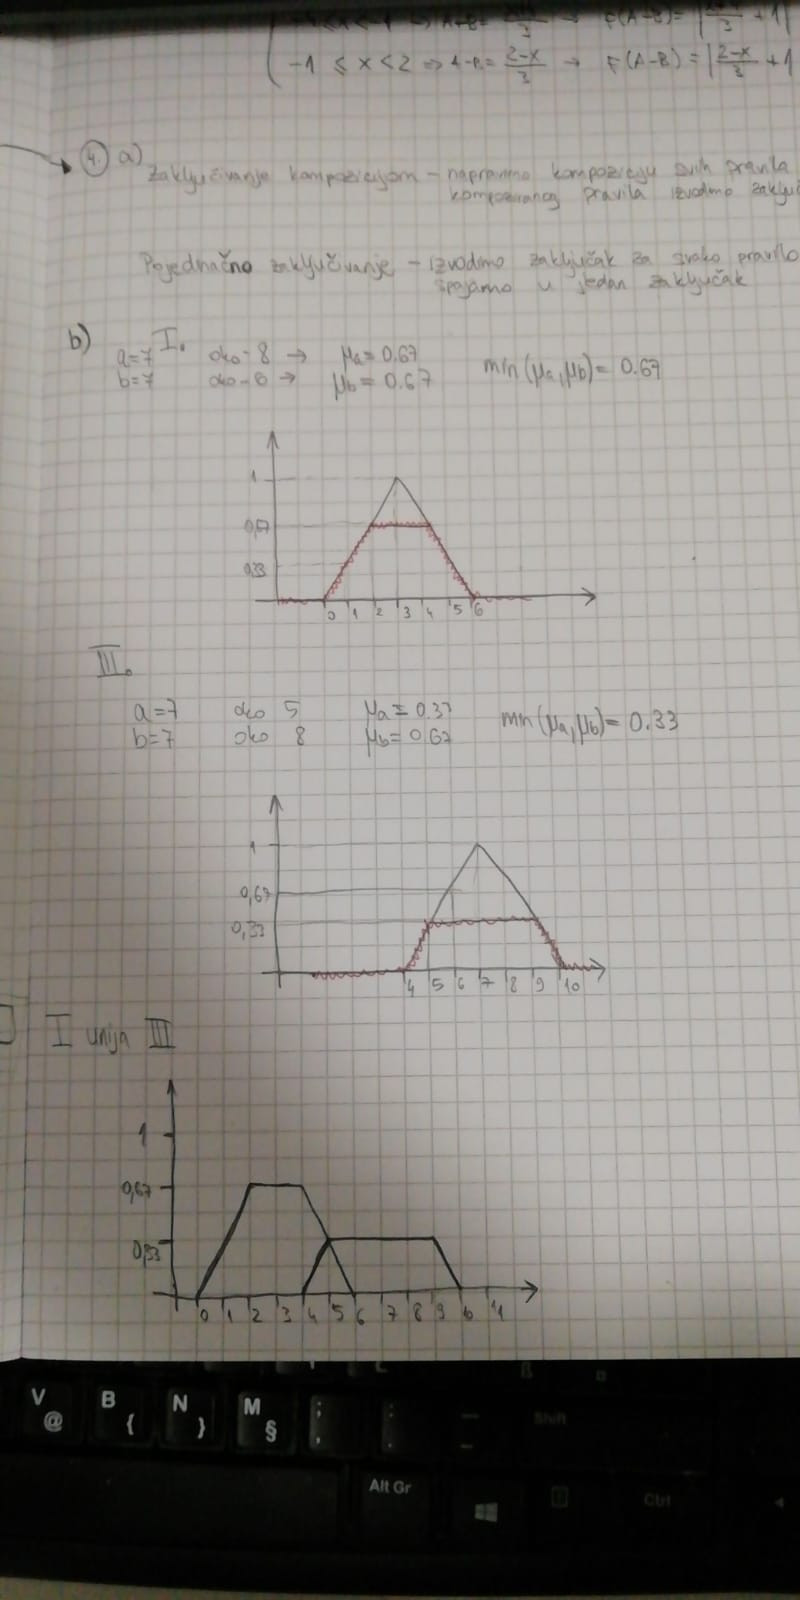 -1 ≤ x < 2 ⇒ A-B = 2-x/3 → F(A-B) = |2-x/3 + 1
4. a)
Zaključivanje kompozicijom - napravimo kompoziciju svih pravila
komponiranog pravila izvodimo zaklju
Pojedinačno zaključivanje - izvodimo zaključak za svako pravilo
spajamo u jedan zaključak
b) I.
a=7 oko 8 → μa = 0.67
b=7 oko 6 → μb = 0.67 min(μa, μb) = 0.67
1
0,67
0,33
0 1 2 3 4 5 6
III.
a=7 oko 5 μa = 0.33
b=7 oko 8 μb = 0.67 min(μa, μb) = 0.33
1
0,67
0,33
4 5 6 7 8 9 10
I unija III
1
0,67
0,33
0 1 2 3 4 5 6 7 8 9 10 11
V @
B {
N }
M §
; ,
: .
- _
Shift
Alt Gr
Ctrl